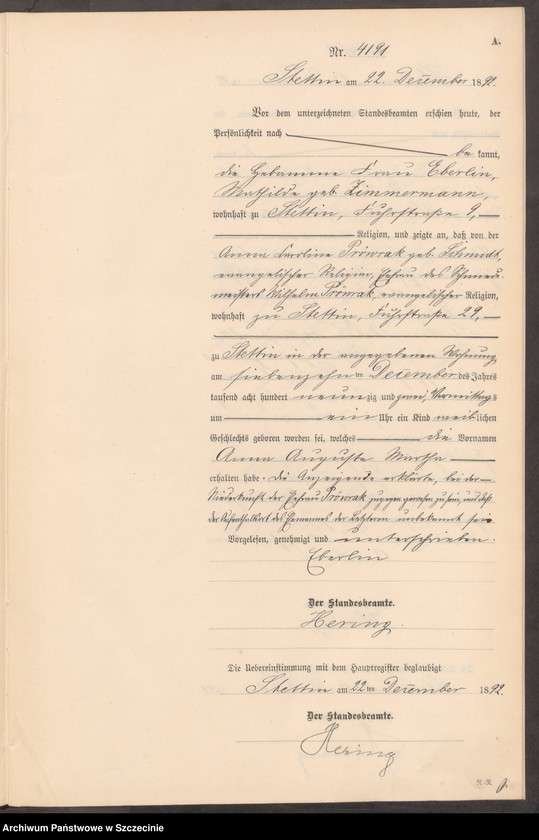 A.
Nr. 4191
Stettin am 22. December 1892.
Vor dem unterzeichneten Standesbeamten erschien heute, der
Persönlichkeit nach
bekannt,
die Hebamme Frau Eberlin,
Mathilde geb. Zimmermann,
wohnhaft zu Stettin, Fuhrstraße 9,
Religion, und zeigte an, daß von der
Anna Caroline Prówrak geb. Schmidt,
evangelischer Religion, Ehefrau des
meisters Wilhelm Prówrak, evangelischer Religion,
wohnhaft zu Stettin, Fuhrstraße 29,
zu Stettin in der angegebenen Wohnung,
am siebenzehnten December des Jahres
tausend acht hundert neunzig und zwei, Vormittags
um ein Uhr ein Kind weiblichen
Geschlechts geboren worden sei, welches die Vornamen
Anna Auguste Martha
erhalten habe. Die Anzeigende erklärte, bei der
Niederkunft der Ehefrau Prówrak zugegen gewesen zu sein, und daß
der Aufenthaltsort des Ehemannes der Letzteren unbekannt sei.
Vorgelesen, genehmigt und unterschrieben.
Eberlin
Der Standesbeamte.
Hering.
Die Uebereinstimmung mit dem Hauptregister beglaubigt
Stettin am 22ten December 1892.
Der Standesbeamte.
Hering
Archiwum Państwowe w Szczecinie